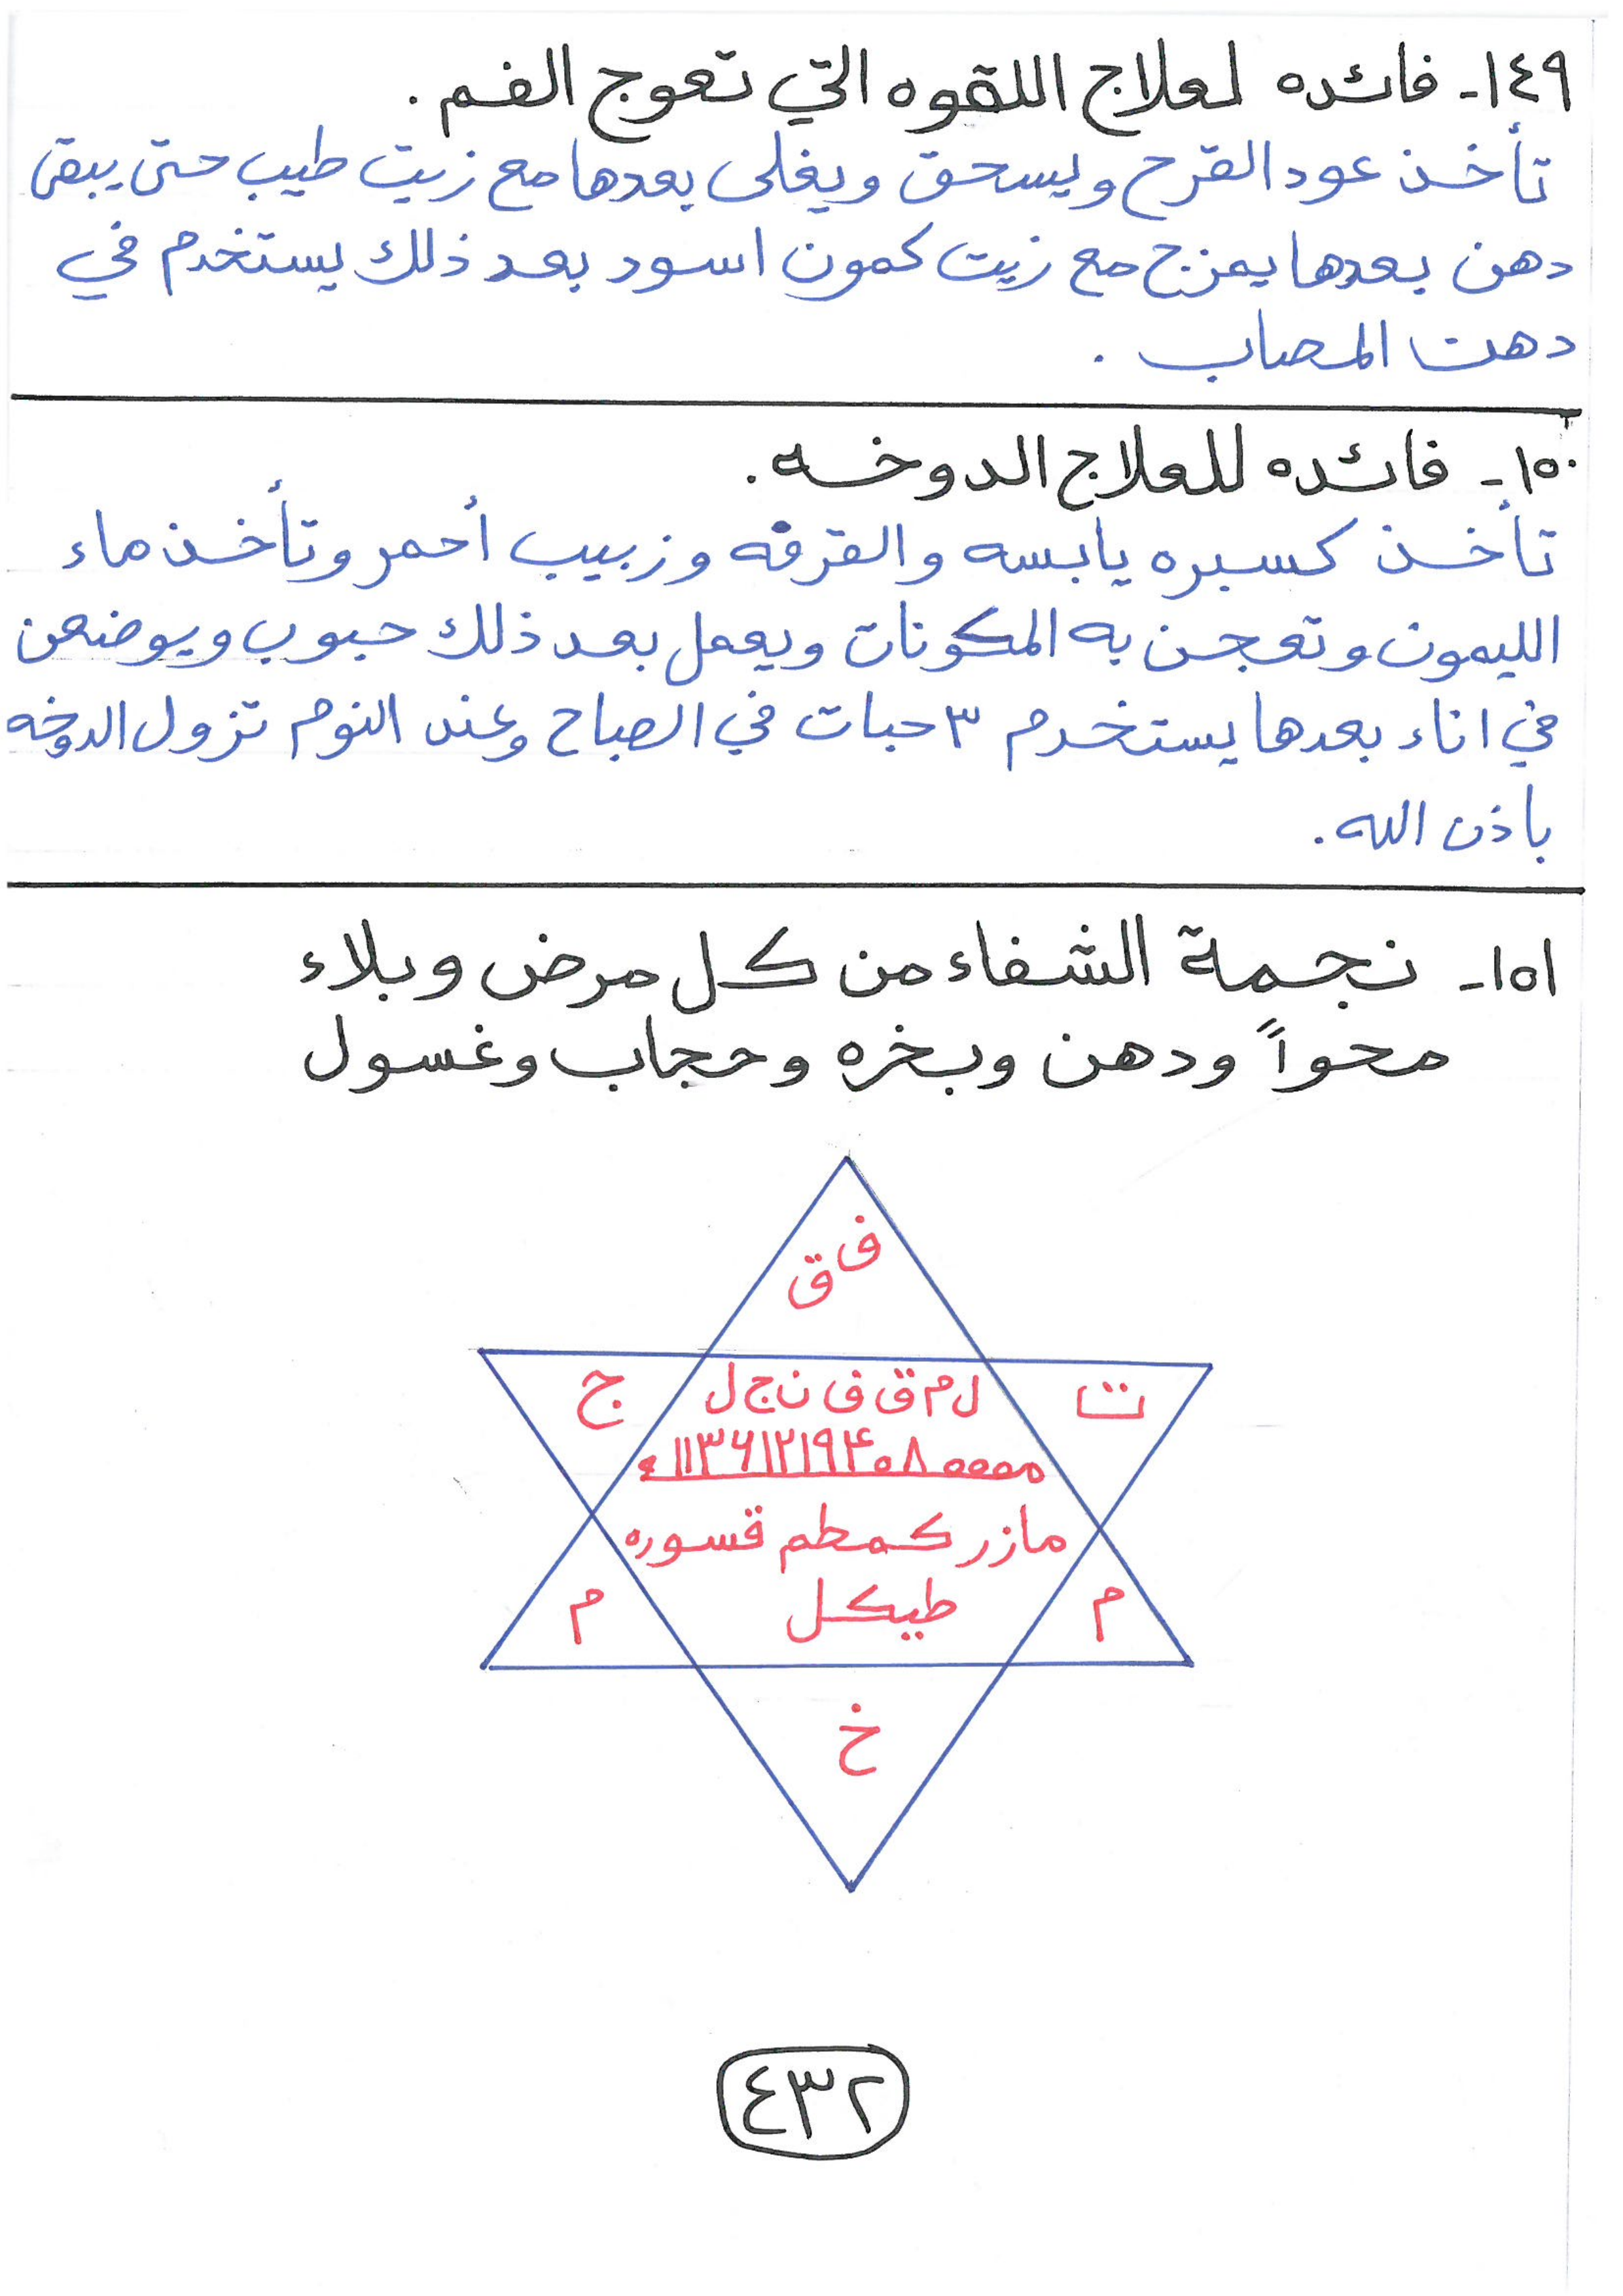 ١٤٩- فائده لعلاج اللقوه التي تعوج الفم .
تأخذ عود القرح ويسحق ويغلى بعدها مع زيت طيب حتى يبقى
دهن بعدها يمزج مع زيت كمون اسود بعد ذلك يستخدم في
دهن المصاب .
١٥٠- فائده للعلاج الدوخه .
تأخذ كسبره يابسه والقرفه وزبيب أحمر وتأخذ ماء
الليمون وتعجن به المكونات ويعمل بعد ذلك حبوب ويوضعن
في اناء بعدها يستخدم ٣ حبات في الصباح وعند النوم تزول الدوخه
بأذن الله .
١٥١- نجمة الشفاء من كل مرض وبلاء
محواً ودهن وبخره وحجاب وغسول
ف
ق
ج
ل م ق ف ن ج ل
ت
مازر كمطم قسوره
م
طيكل
م
خ
٤٣٢